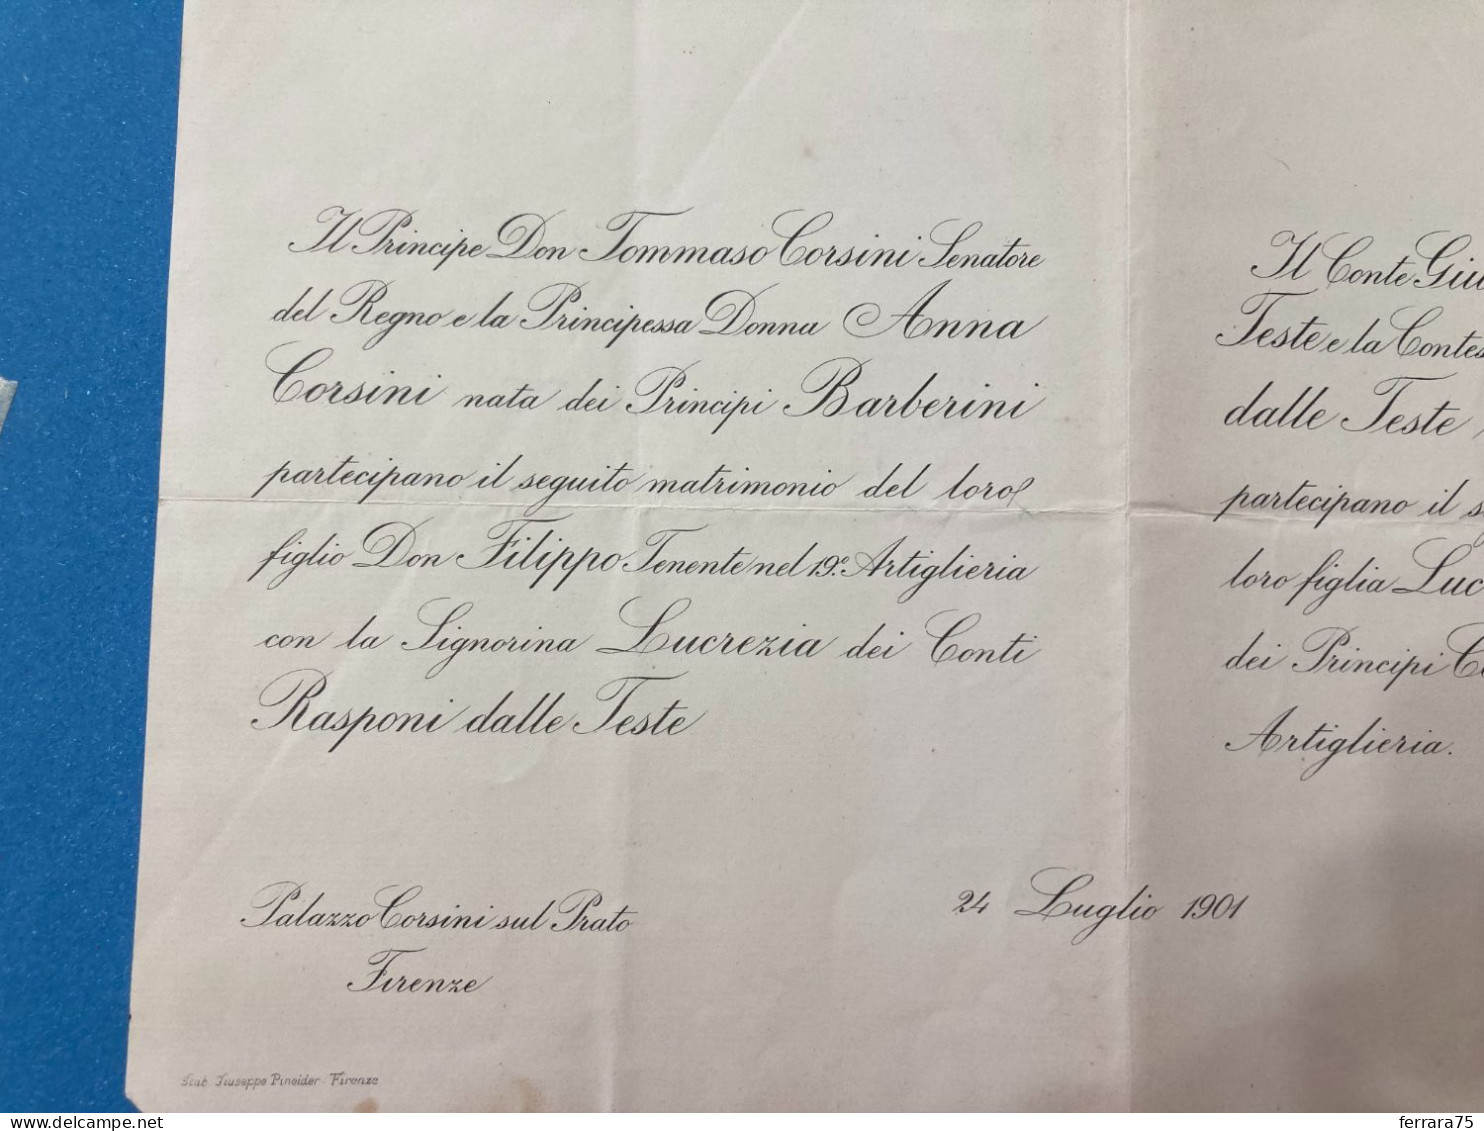 Il Principe Don Tommaso Corsini Senatore
del Regno e la Principessa Donna Anna
Corsini nata dei Principi Barberini
partecipano il seguito matrimonio del loro
figlio Don Filippo Tenente nel 19º Artiglieria
con la Signorina Lucrezia dei Conti
Rasponi dalle Teste
Palazzo Corsini sul Prato
Firenze
Il Conte
Teste e la
dalle Teste
partecipano il
loro figlia
dei Principi
Artiglieria.
24 Luglio 1901
Stab. Giuseppe Pineider Firenze
ferrara75